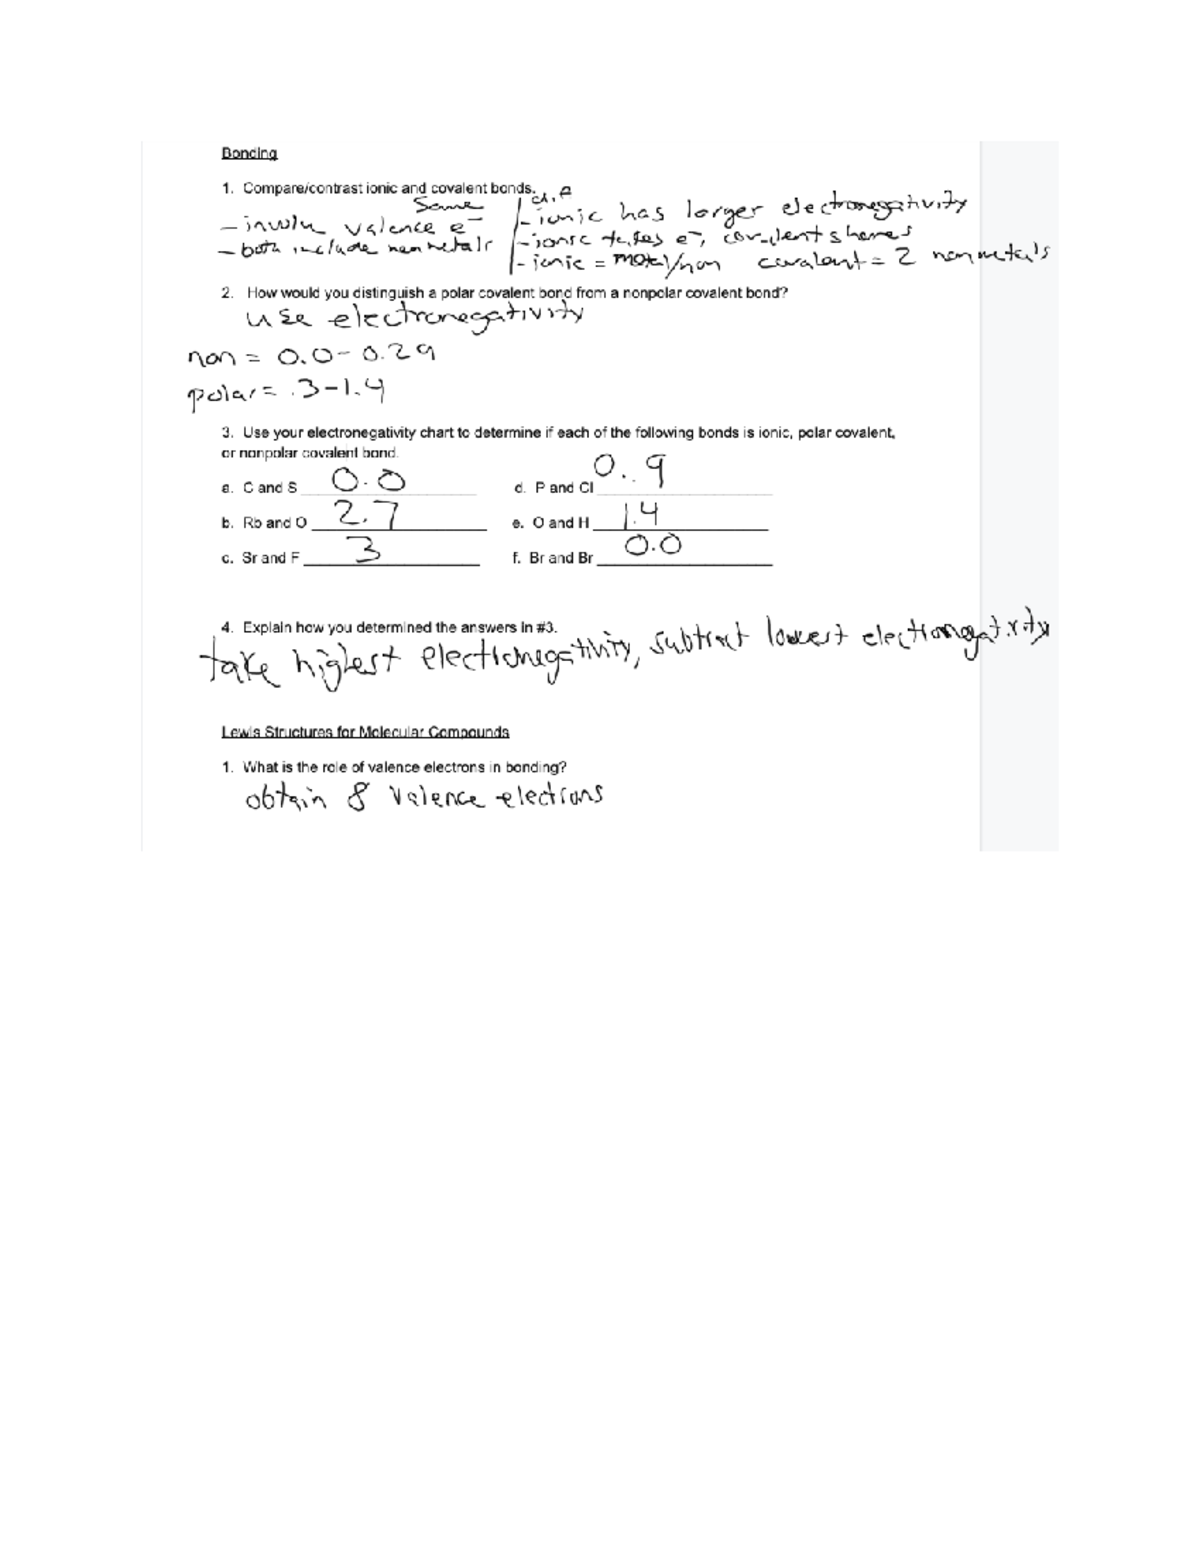 Bonding
1. Compare/contrast ionic and covalent bonds.
Same
dif
- involv valence e⁻
- both include nonmetals
- ionic has larger electronegativity
- ionic takes e⁻, covalent shares
- ionic = metal/non covalent = 2 nonmetals
2. How would you distinguish a polar covalent bond from a nonpolar covalent bond?
use electronegativity
non = 0.0 - 0.29
polar = .3 - 1.4
3. Use your electronegativity chart to determine if each of the following bonds is ionic, polar covalent,
or nonpolar covalent bond.
a. C and S 0.0 d. P and Cl 0.9
b. Rb and O 2.7 e. O and H 1.4
c. Sr and F 3 f. Br and Br 0.0
4. Explain how you determined the answers in #3.
take highest electronegativity, subtract lowest electronegativity
Lewis Structures for Molecular Compounds
1. What is the role of valence electrons in bonding?
obtain 8 valence electrons